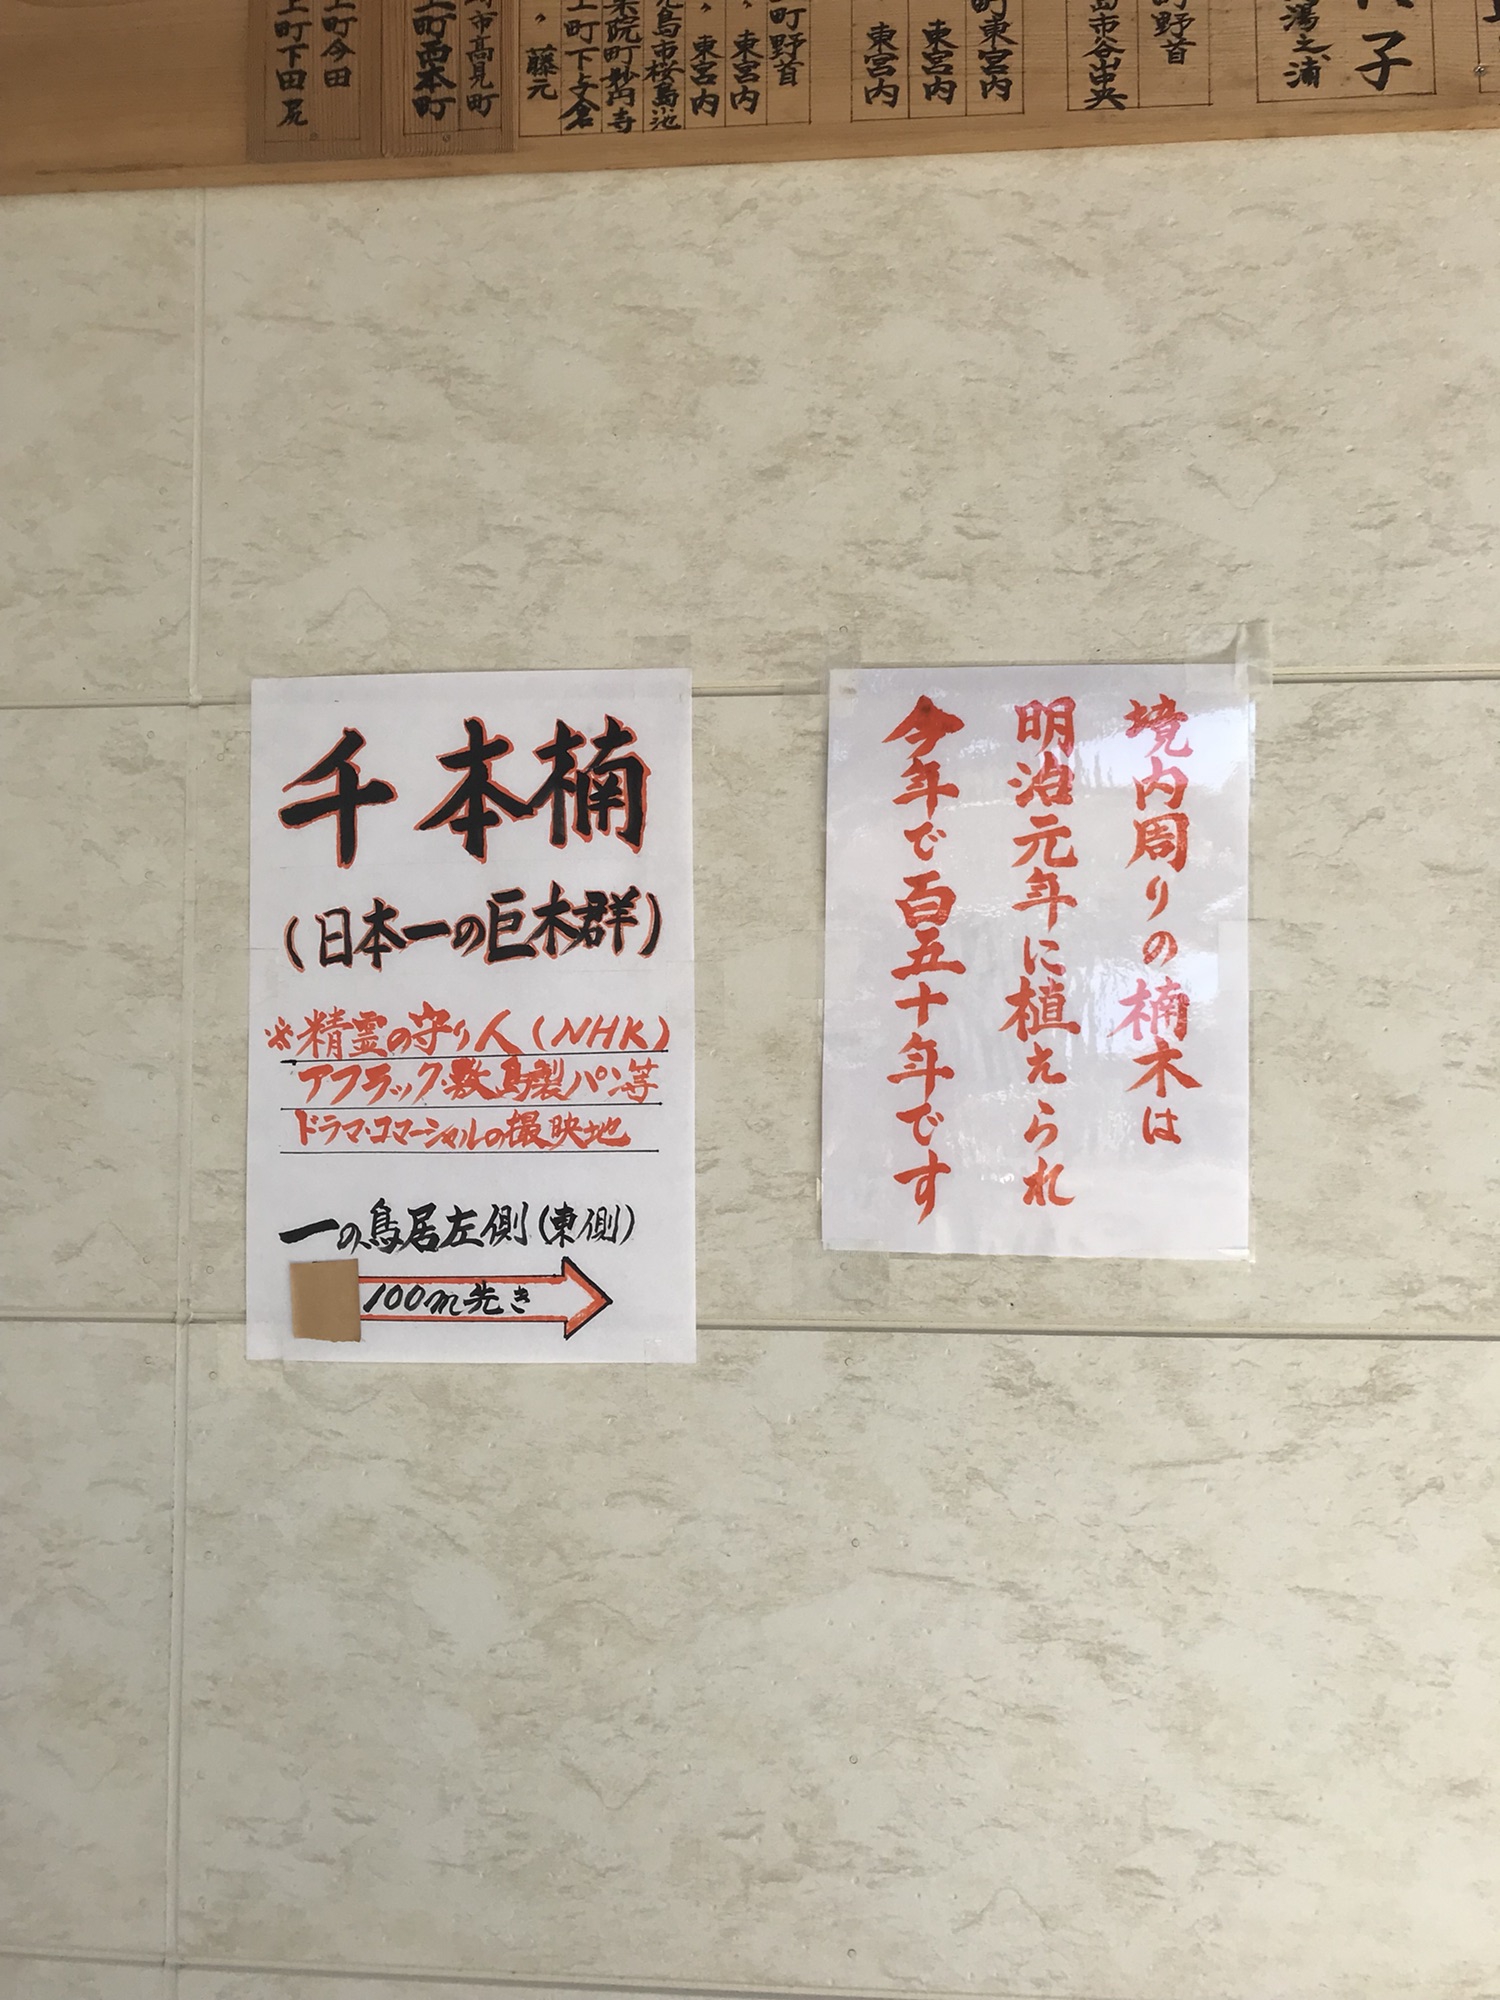 子
湯之浦
町野首
島市谷山中央
町東宮内
東宮内
東宮内
町野首
東宮内
東宮内
児島市桜島小池
集院町妙円寺
上町下与倉
藤元
市高見町
上町西本町
上町今田
上町下田尻
境内周りの楠木は
明治元年に植えられ
今年で百五十年です
千本楠
(日本一の巨木群)
※精霊の守り人(NHK)
アフラック・敷島製パン等
ドラマ・コマーシャルの撮映地
一の鳥居左側(東側)
100m先き